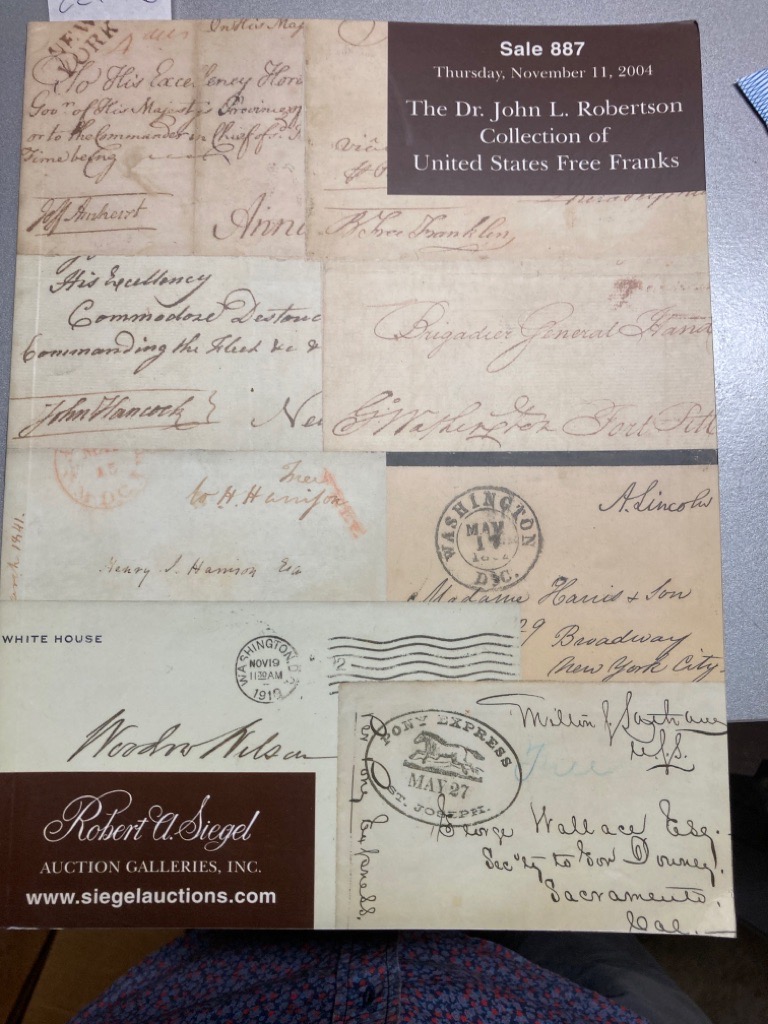 NEW
YORK
On His Maj
To His Excellency Hora
Gov.r of His Majesty's Province of
or to the Commander in Chief of
Time being
Jeff Amherst
Anna
Sale 887
Thursday, November 11, 2004
The Dr. John L. Robertson
Collection of
United States Free Franks
B Free Franklin
His Excellency
Commodore Destouc
Commanding the Fleet &c &
John Hancock
Ne
Brigadier General Hand
G Washington
Fort Pitt
15
D.C.
1841.
Free
W H Harrison
FREE
Henry S. Harrison Esq
A. Lincoln
WASHINGTON
MAY
17
D.C.
Madame Harris & Son
29 Broadway
New York City.
WHITE HOUSE
WASHINGTON, D.C.
NOV 19
11 30 AM
1919
2
Woodrow Wilson
PONY EXPRESS
MAY 27
ST. JOSEPH.
Per Pony Express.
Milton S. Latham
U.S.S.
Free
George Wallace Esq.
Sec'ty to Gov Downey
Sacramento,
Cal.
Robert A. Siegel
AUCTION GALLERIES, INC.
www.siegelauctions.com